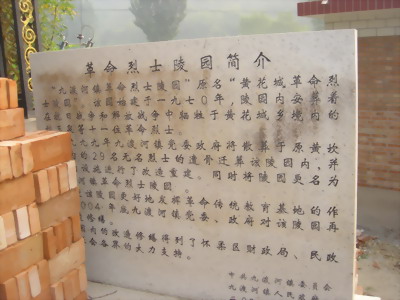 革命烈士陵园简介
"九渡河镇革命烈士陵园"原名"黄花城革命烈
士陵园"。该园始建于一九七0年,陵园内安葬着
在抗日战争和解放战争中牺牲于黄花城乡境内的
等十一位革命烈士。
九九年九渡河镇党委政府将散葬于原黄坎
的29名无名烈士的遗骨迁葬该陵园内,并
施进行了改造重建。同时将陵园更名为
镇革命烈士陵园。
该陵园更好地发挥革命传统教育基地的作
004年底九渡河镇党委、政府对该陵园再
修缮。
园内的改造修缮得到了怀柔区财政局、民政
会各界的大力支持。
中共九渡河镇委员会
九渡河镇人民政府